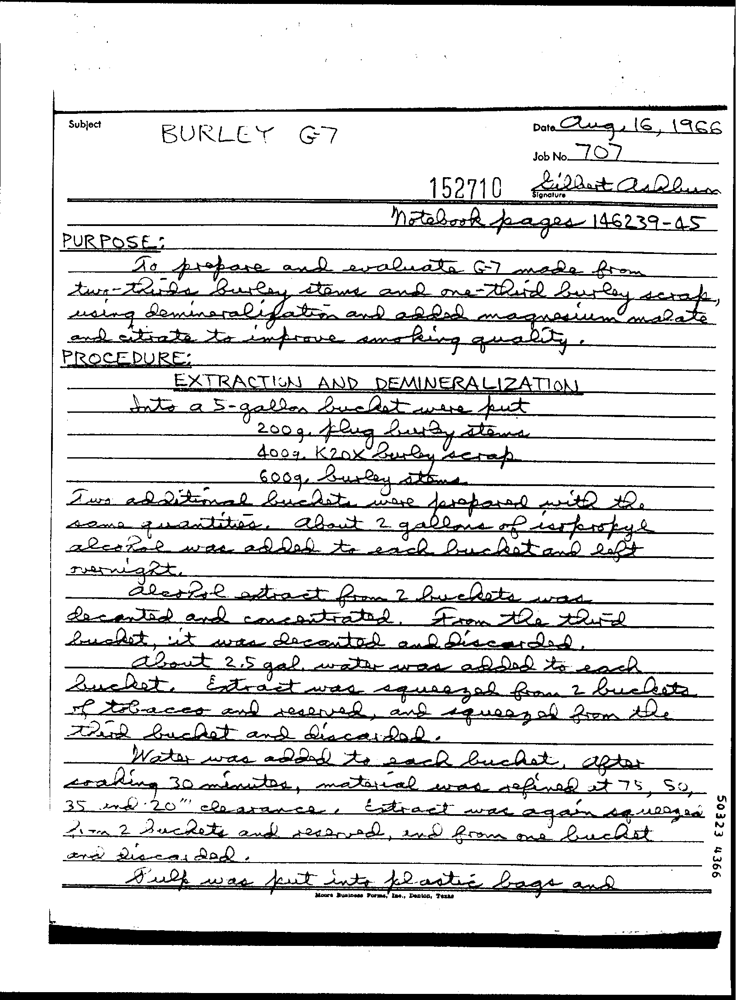 Subject BURLEY G-7 Date Aug. 16, 1966
Job No. 707
152710 Gilbert Ashburn
Signature
Notebook pages 146239-45
PURPOSE:
To prepare and evaluate G-7 made from
two-thirds burley stems and one-third burley scrap,
using demineralization and added magnesium malate
and citrate to improve smoking quality.
PROCEDURE:
EXTRACTION AND DEMINERALIZATION
Into a 5-gallon bucket were put
200g. plug burley stems
400g. K20X burley scrap
600g. burley stems
Two additional buckets were prepared with the
same quantities. About 2 gallons of isopropyl
alcohol was added to each bucket and left
overnight.
Alcohol extract from 2 buckets was
decanted and concentrated. From the third
bucket, it was decanted and discarded.
About 2.5 gal. water was added to each
bucket. Extract was squeezed from 2 buckets
of tobacco and reserved, and squeezed from the
third bucket and discarded.
Water was added to each bucket. After
soaking 30 minutes, material was refined at 75, 50,
35 and 20" clearance. Extract was again squeezed
from 2 buckets and reserved, and from one bucket
and discarded.
Pulp was put into plastic bags and
Moore Business Forms, Inc., Denton, Texas
50323 4366